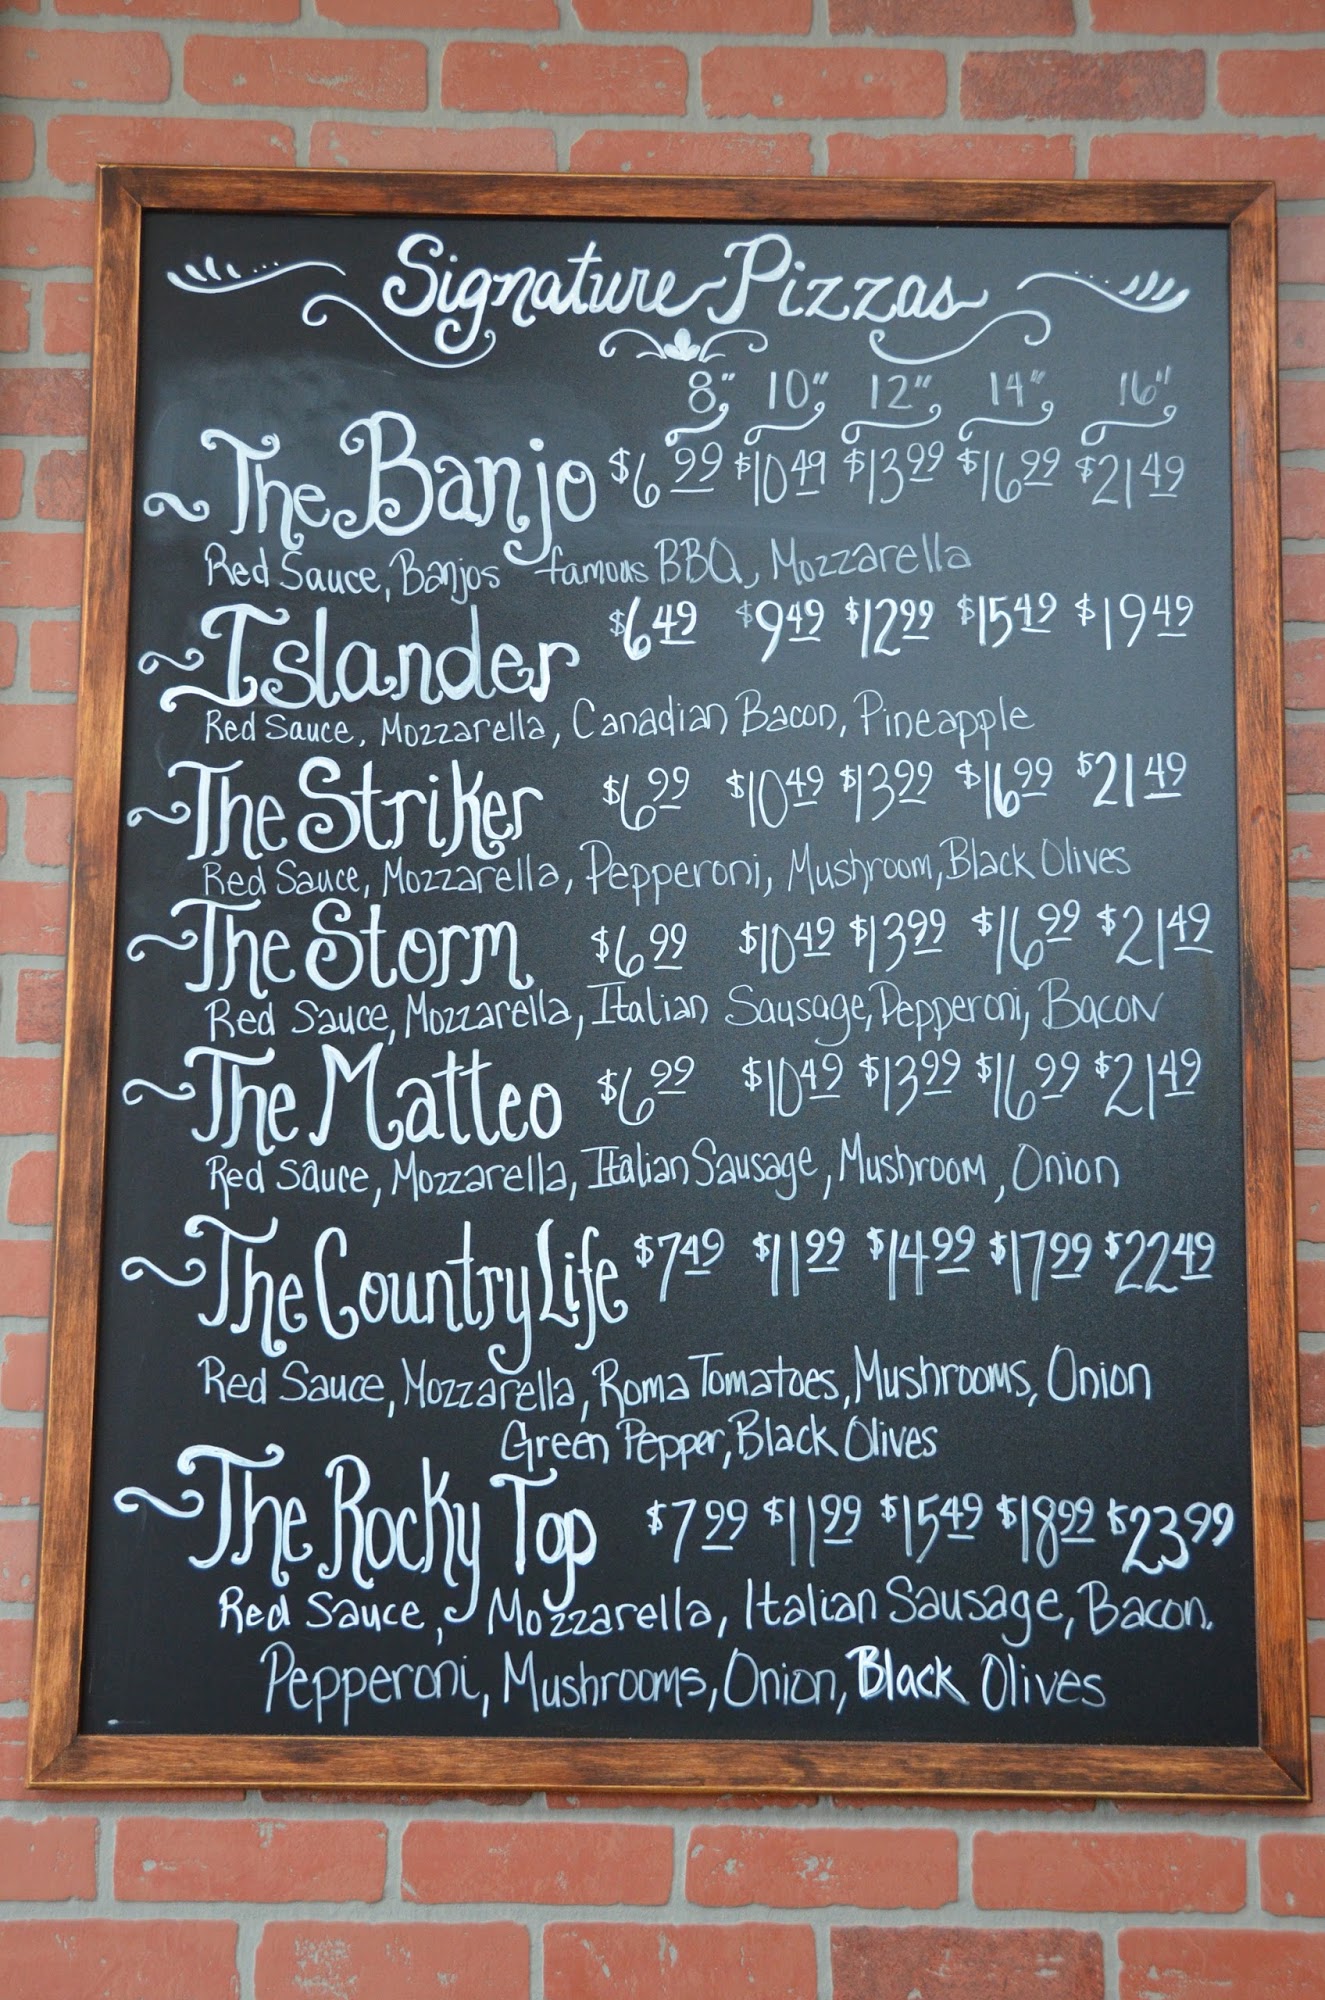 Signature Pizzas
8" 10" 12" 14" 16"
The Banjo $6.99 $10.49 $13.99 $16.99 $21.49
Red Sauce, Banjos famous BBQ, Mozzarella
Islander $6.49 $9.49 $12.99 $15.49 $19.49
Red Sauce, Mozzarella, Canadian Bacon, Pineapple
The Striker $6.99 $10.49 $13.99 $16.99 $21.49
Red Sauce, Mozzarella, Pepperoni, Mushroom, Black Olives
The Storm $6.99 $10.49 $13.99 $16.99 $21.49
Red Sauce, Mozzarella, Italian Sausage, Pepperoni, Bacon
The Matteo $6.99 $10.49 $13.99 $16.99 $21.49
Red Sauce, Mozzarella, Italian Sausage, Mushroom, Onion
The Country Life $7.49 $11.99 $14.99 $17.99 $22.49
Red Sauce, Mozzarella, Roma Tomatoes, Mushrooms, Onion
Green Pepper, Black Olives
The Rocky Top $7.99 $11.99 $15.49 $18.99 $23.99
Red Sauce, Mozzarella, Italian Sausage, Bacon,
Pepperoni, Mushrooms, Onion, Black Olives